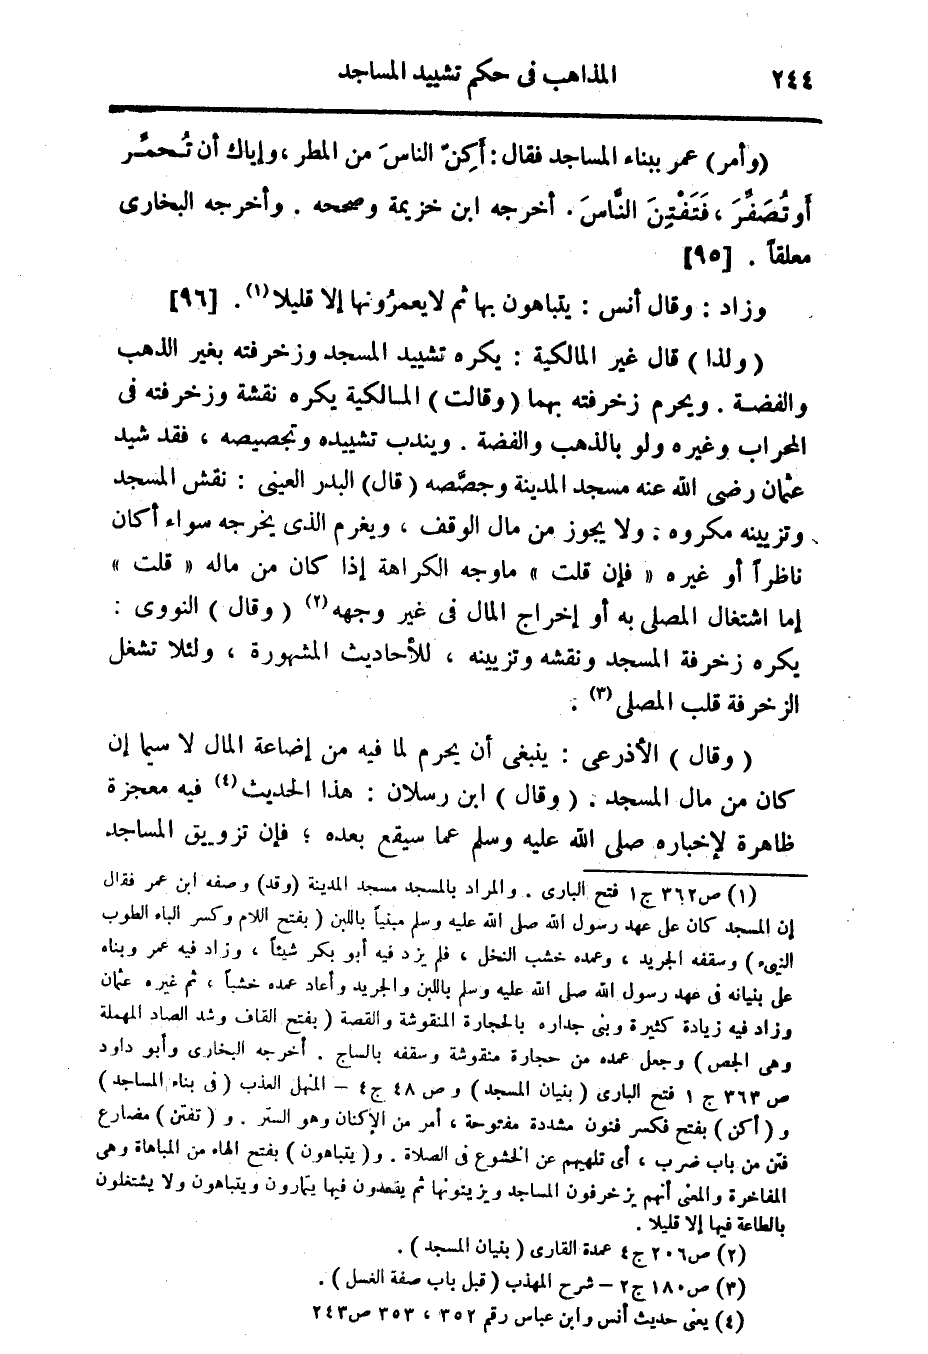 ٢٤٤ المذاهب فى حكم تشييد المساجد
(وأمر) عمر ببناء المساجد فقال: أَكِنّ الناسَ من المطر، وإياك أن تُحمِّر
أو تُصَفِّرَ، فَتَفْتِنَ النَّاسَ. أخرجه ابن خزيمة وصححه. وأخرجه البخارى
معلقاً. [٩٥]
وزاد: وقال أنس: يتباهون بها ثم لايعمرُونها إلا قليلا(١). [٩٦]
(ولذا) قال غير المالكية: يكره تشييد المسجد وزخرفته بغير الذهب
والفضة. ويحرم زخرفته بهما (وقالت) المالكية يكره نقشة وزخرفته فى
المحراب وغيره ولو بالذهب والفضة. ويندب تشييده وتجصيصه، فقد شيد
عثمان رضى الله عنه مسجد المدينة وجصَّصه (قال) البدر العينى: نقش المسجد
وتزيينه مكروه. ولا يجوز من مال الوقف، ويغرم الذى يخرجه سواء أكان
ناظراً أو غيره «فإن قلت» ماوجه الكراهة إذا كان من ماله «قلت»
إما اشتغال المصلى به أو إخراج المال فى غير وجهه(٢) (وقال) النووى:
يكره زخرفة المسجد ونقشه وتزيينه، للأحاديث المشهورة، ولئلا تشغل
الزخرفة قلب المصلى(٣).
(وقال) الأذرعى: ينبغى أن يحرم لما فيه من إضاعة المال لا سيما إن
كان من مال المسجد. (وقال) ابن رسلان: هذا الحديث(٤) فيه معجزة
ظاهرة لإخباره صلى الله عليه وسلم عما سيقع بعده؛ فإن تزويق المساجد
(١) ص٣٦٢ ج١ فتح البارى. والمراد بالمسجد مسجد المدينة (وقد) وصفه ابن عمر فقال
إن المسجد كان على عهد رسول الله صلى الله عليه وسلم مبنياً باللبن (بفتح اللام وكسر الباء الطوب
النىء) وسقفه الجريد، وعمده خشب النخل، فلم يزد فيه أبو بكر شيئاً، وزاد فيه عمر وبناه
على بنيانه فى عهد رسول الله صلى الله عليه وسلم باللبن والجريد وأعاد عمده خشباً، ثم غيره عثمان
وزاد فيه زيادة كثيرة وبنى جداره بالحجارة المنقوشة والقصة (بفتح القاف وشد الصاد المهملة
وهى الجص) وجعل عمده من حجارة منقوشة وسقفه بالساج. أخرجه البخارى وأبو داود
ص ٣٦٣ ج ١ فتح البارى (بنيان المسجد) و ص ٤٨ ج٤ – المنهل العذب (فى بناء المساجد)
و(أكن) بفتح فكسر فنون مشددة مفتوحة، أمر من الإكنان وهو الستر. و(تفتن) مضارع
فتن من باب ضرب، أى تلهيهم عن الخشوع فى الصلاة. و(يتباهون) بفتح الهاء من المباهاة وهى
المفاخرة والمعنى أنهم يزخرفون المساجد ويزينونها ثم يقعدون فيها يتمارون ويتباهون ولا يشتغلون
بالطاعة فيها إلا قليلا.
(٢) ص٢٠٦ ج٤ عمدة القارى (بنيان المسجد).
(٣) ص١٨٠ ج٢ – شرح المهذب (قبل باب صفة الغسل).
(٤) يعنى حديث أنس وابن عباس رقم ٣٥٢، ٣٥٣ ص٢٤٣